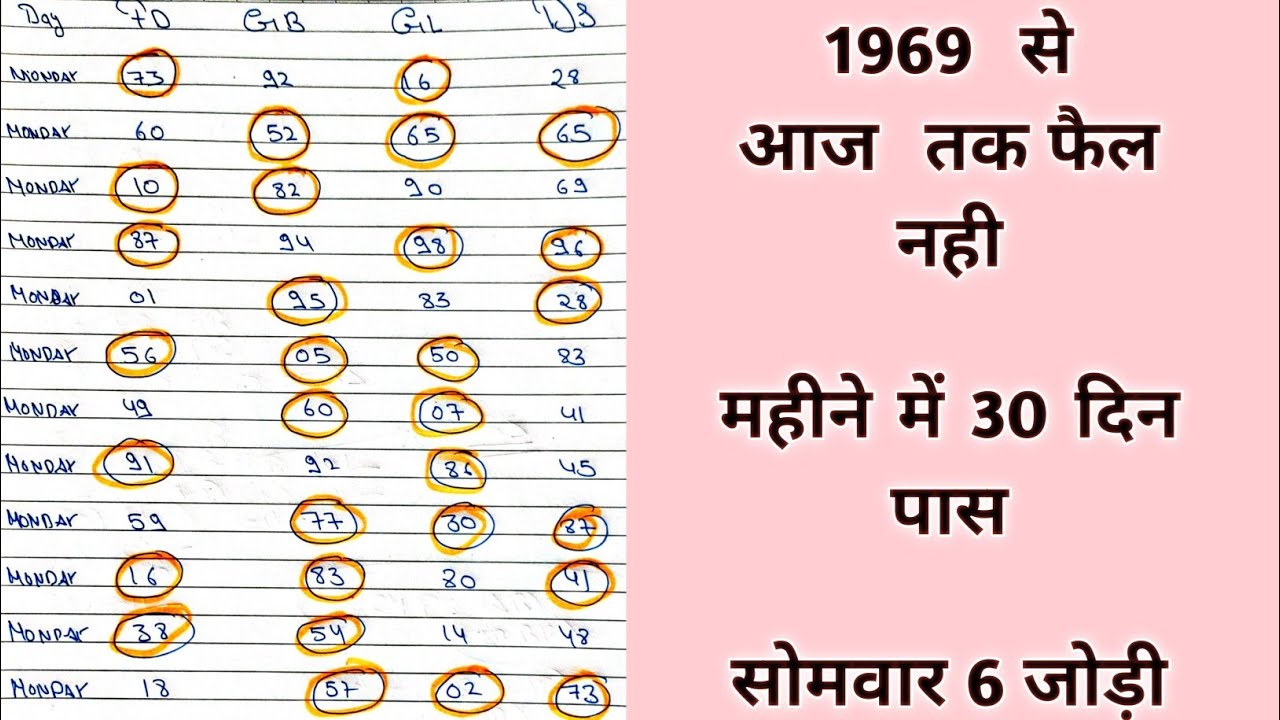 Day FD GB GL DS
MONDAY 73 92 16 28
MONDAY 60 52 65 65
MONDAY 10 82 90 69
MONDAY 87 94 98 96
MONDAY 01 95 83 28
MONDAY 56 05 50 83
MONDAY 49 60 07 41
MONDAY 91 92 86 45
MONDAY 59 77 30 37
MONDAY 16 83 80 41
MONDAY 38 54 14 48
MONDAY 18 57 02 73
1969 से
आज तक फैल
नही
महीने में 30 दिन
पास
सोमवार 6 जोड़ी